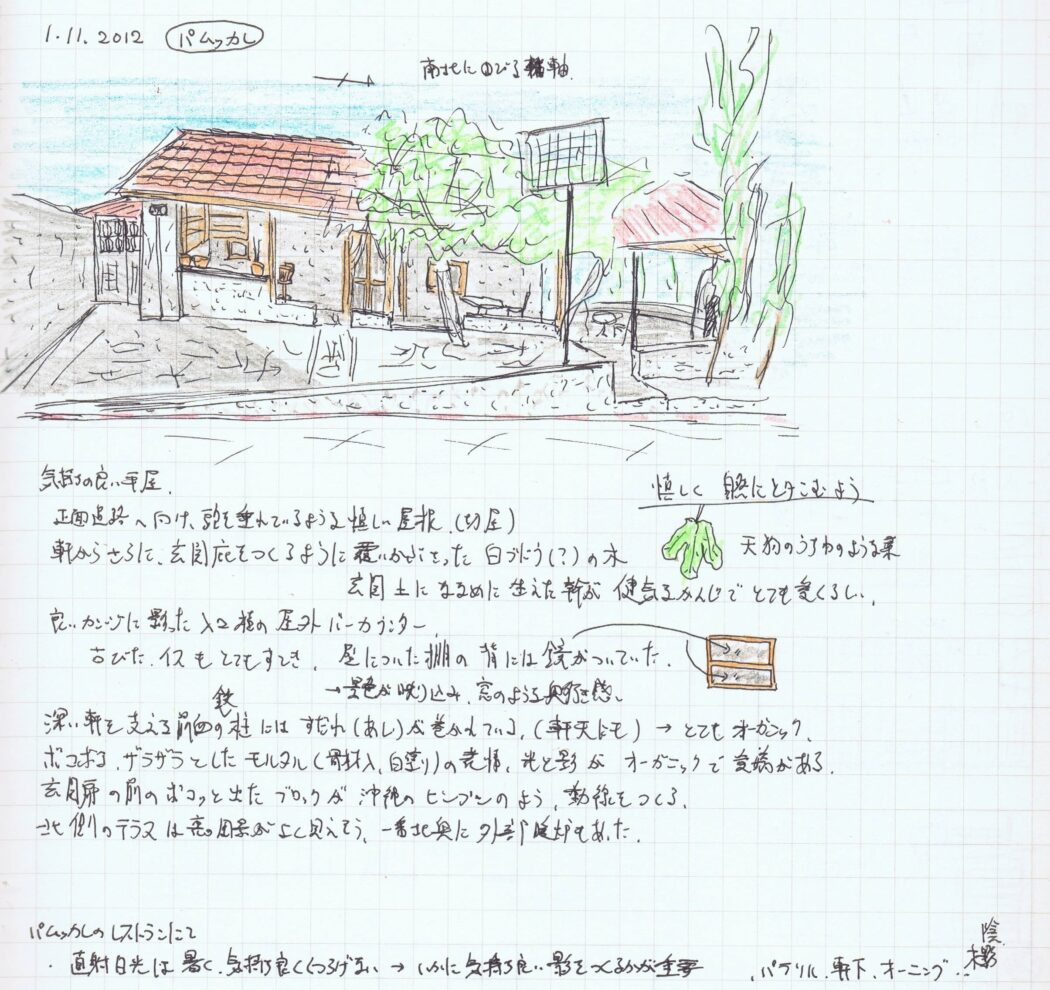 1.11.2012 パムッカレ
南北にのびる軸
気持の良い平屋.
正面道路へ向け、頭を垂れているような優しい屋根.(切屋)
優しく 自然にとけこむよう
軒からさらに、玄関庇をつくるように覆いかぶさった 白ブドウ(?)の木
天狗のうちわのような葉
玄関土にななめに生えた幹が 健気なかんじで とても愛くるしい.
良いカンジに影った 屋外バーカウンター.
古びたイスもとてもすてき. 壁についた棚の背には鏡がついていた.
→景色が映り込み、窓のような奥行き感.
鉄
深い軒を支える前面の柱には すだれ(あし)が巻かれている.(軒天にも) → とてもオーガニック.
ボコボコ、ザラザラとしたモルタル(骨材入、白塗り)の 光と影が オーガニックで がある.
玄関扉の前のボコッと出たブロックが 沖縄のヒンプンのよう、動線をつくる.
北側のテラスは 風景がよく見えそう. 一番北奥に外部 もあった.
パムッカレのレストランにて
陰
・直射日光は暑く、気持ち良くくつろげない → いかに気持ち良い影をつくるかが重要 軒下、オーニング...